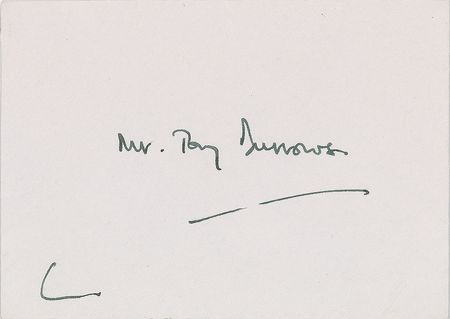 Mr. Tony Burrows.